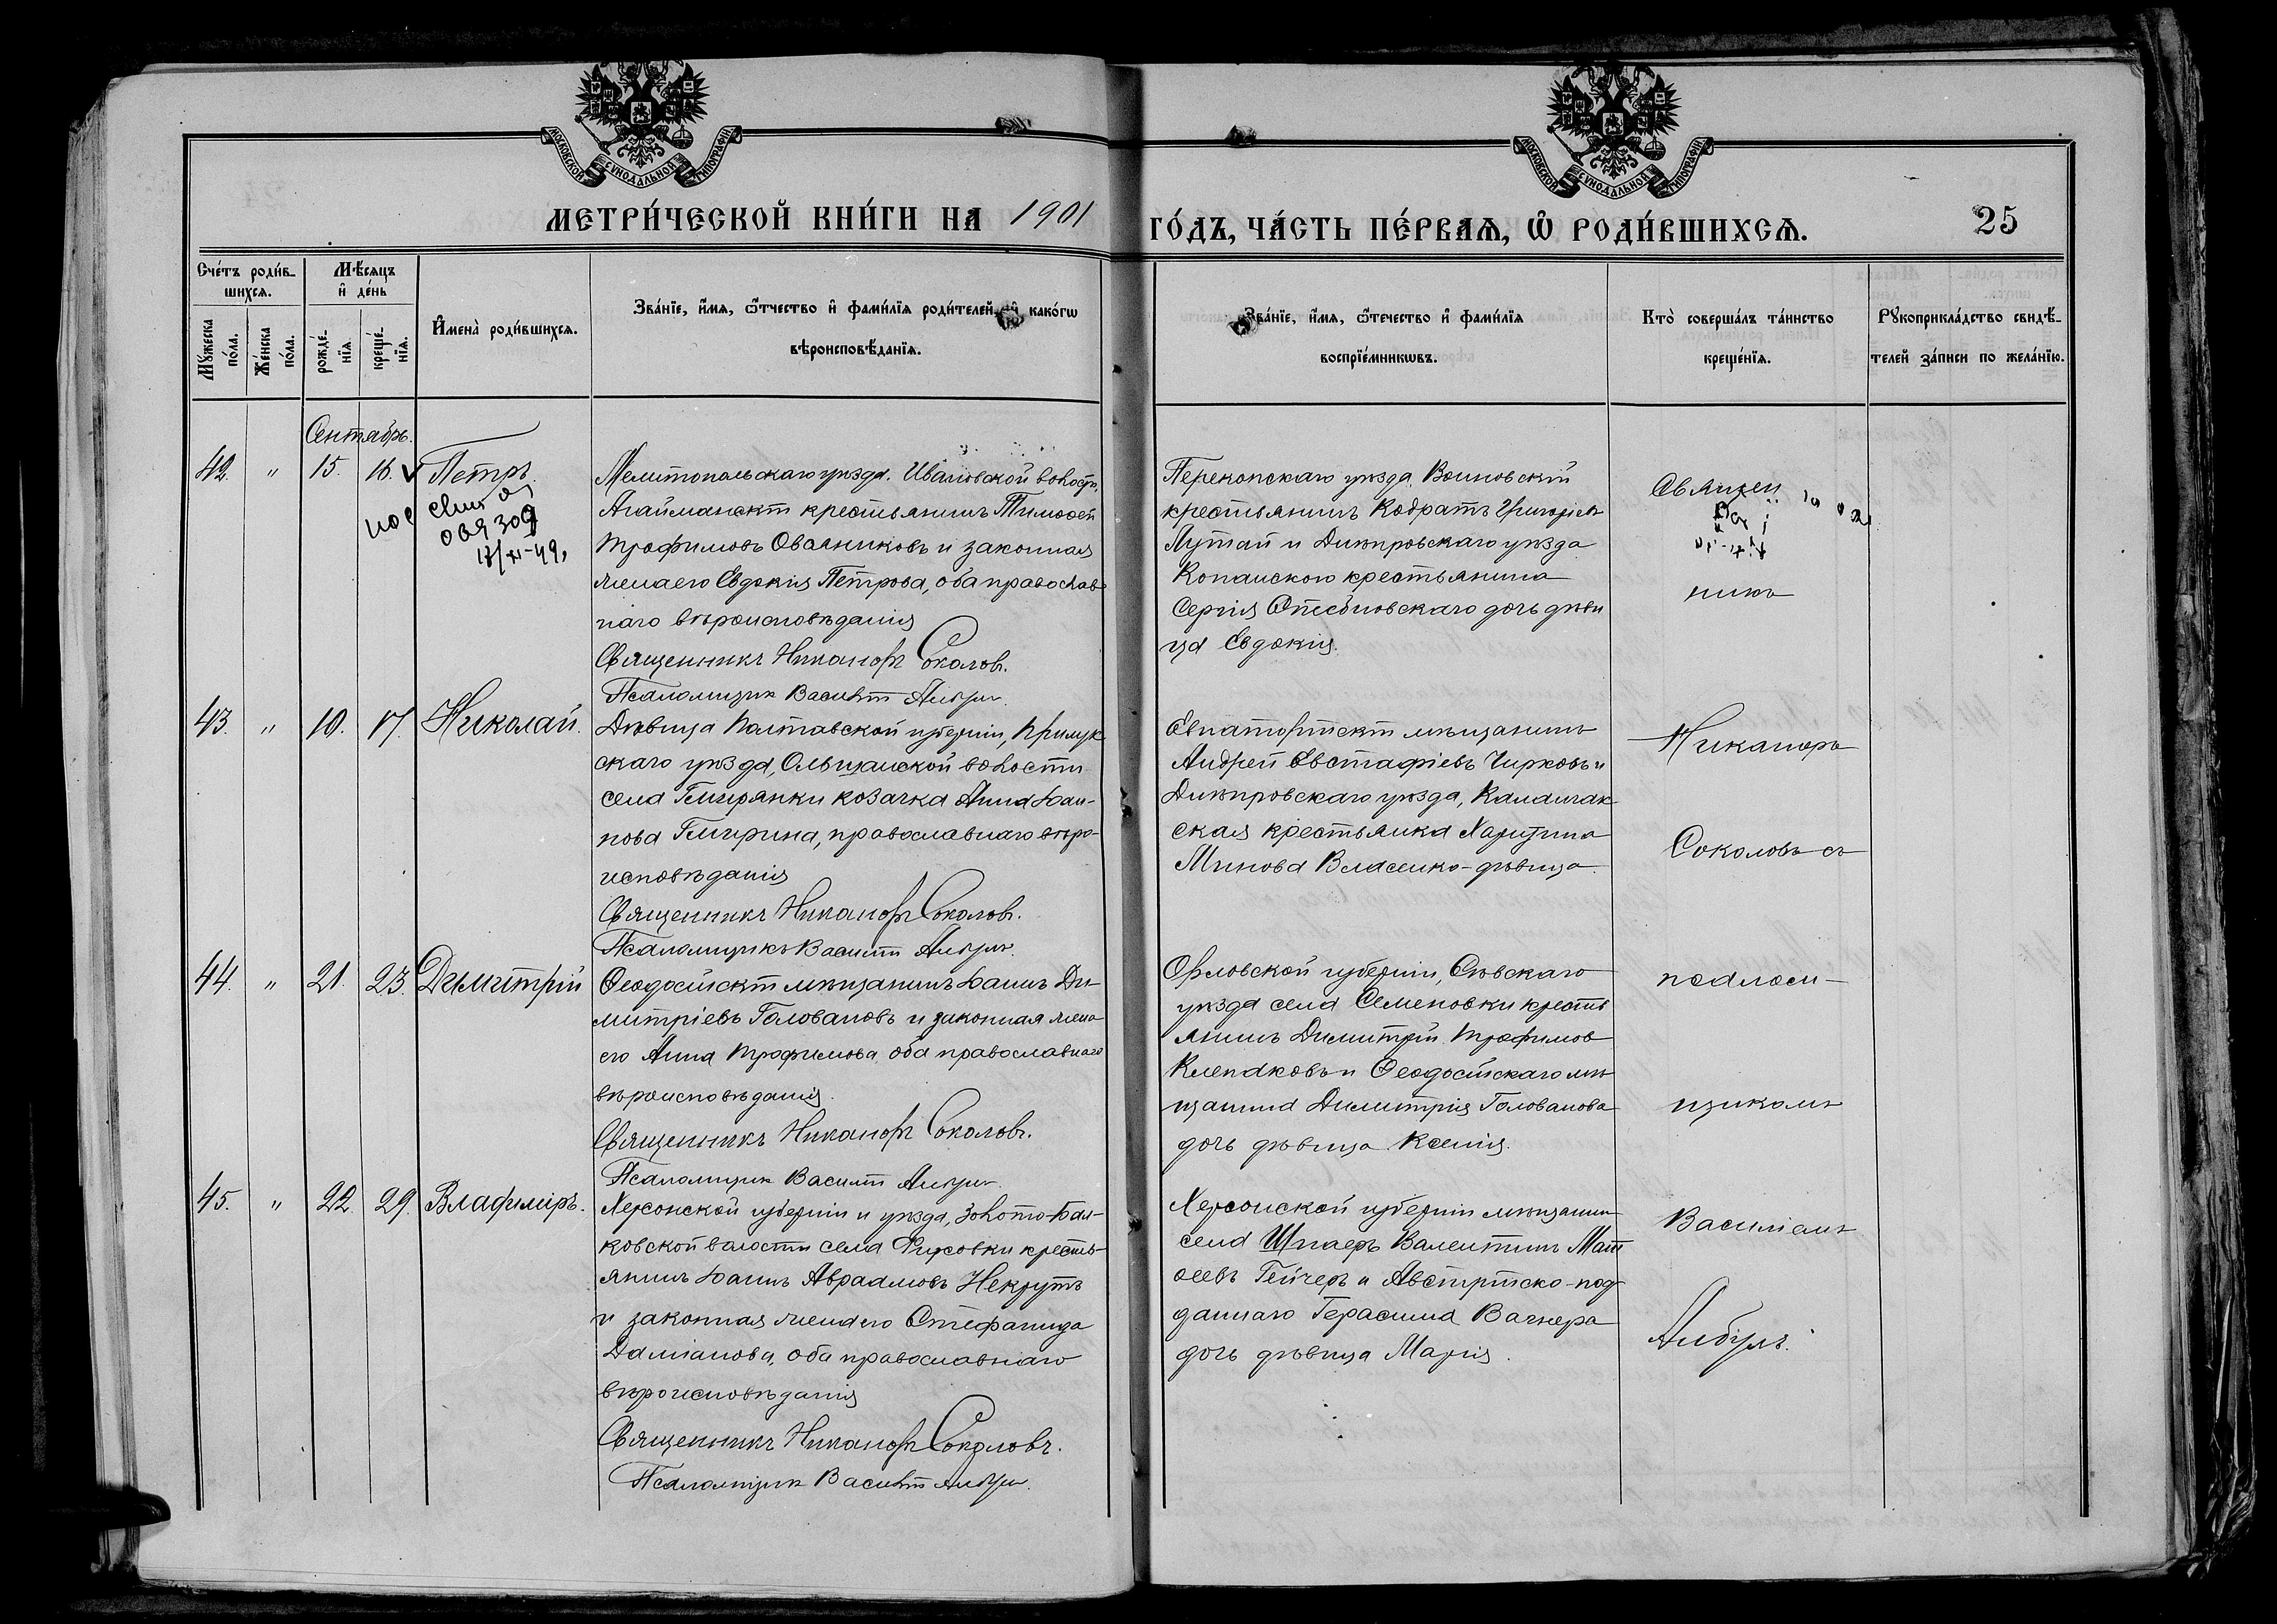 МОСКОВСКОЙ СѴНОДАЛЬНОЙ ТИПОГРАФІИ
МОСКОВСКОЙ СѴНОДАЛЬНОЙ ТИПОГРАФІИ
МЕТРИ́ЧЕСКОЙ КНИ́ГИ НА 1901
ГО́ДЪ, ЧА́СТЬ ПЕ́РВАѦ, Ѽ РОДИ́ВШИХСѦ.
25
Сче́тъ роди́в-
шихсѧ.
Мѣ́сѧцъ
и҆ де́нь
Мꙋ́жеска
по́ла.
Же́нска
по́ла.
рожде́-
нїѧ.
креще́-
нїѧ.
И҆мена̀ роди́вшихсѧ.
Зва́нїе, и҆́мѧ, ѻ҆́тчество и҆ фами́лїѧ роди́телей, и҆ како́гѡ
вѣроисповѣ́данїѧ.
Зва́нїе, и҆́мѧ, ѻ҆те́чество и҆ фами́лїѧ
воспрїе́мникѡвъ.
Кто̀ соверша́лъ та́инство
креще́нїѧ.
Рꙋкоприкла́дство свидѣ́-
телей за́писи по жела́нїю.
Сентябрь.
42. " 15. 16. Петръ.
13/XI-49,
Мелитопольскаго уѣзда. Ивановской волости,
Агайманскій крестьянинъ Тимоѳей
Трофимовъ Овсяниковъ и законная
жена его Евдокія Петрова, оба православ-
наго вѣроисповѣданія
Священникъ Никаноръ Соколовъ.
Псаломщикъ Василій
Перекопскаго уѣзда, Воиновскій
крестьянинъ Кодратъ Григорьевъ
Лутай и Днѣпровскаго уѣзда
Копанскаго крестьянина
Сергія дочь дѣви
ца Евдокія.
Священ
никъ
43. " 10. 17. Николай.
Дѣвица Полтавской губерніи, Прилук
скаго уѣзда, Ольшанской волости
села Гмирянки козачка Анна Іоан-
нова Гмирина, православнаго вѣро-
исповѣданія
Священникъ Никаноръ Соколовъ.
Псаломщикъ Василій
Евпаторійскій мѣщанинъ
Андрей Евстафіевъ Чирковъ и
Днѣпровскаго уѣзда, Каланчак
ская крестьянка Харитина
Минова Власенко - дѣвица.
Никаноръ
Соколовъ съ
44. " 21. 23. Димитрій
Ѳеодосійскій мѣщанинъ Іоаннъ Ди-
митріевъ Головановъ и законная жена
его Анна Трофимова, оба православнаго
вѣроисповѣданія.
Священникъ Никаноръ Соколовъ.
Псаломщикъ Василій
Орловской губерніи, Сѣвскаго
уѣзда села Семеновки кресть
янинъ Димитрій Трофимов
и Ѳеодосійскаго мѣ
щанина Димитрія Голованова
дочь дѣвица Ксенія.
псалом-
щикомъ
45. " 22. 29. Владиміръ.
Херсонской губерніи и уѣзда, Золото-Бал-
ковской волости села Фирсовки кресть-
янинъ Іоаннъ Авраамовъ Некрутъ
и законная жена его Стефанида
Даміанова, оба православнаго
вѣроисповѣданія
Священникъ Никаноръ Соколовъ.
Псаломщикъ Василій
Херсонской губерніи мѣщанин
села Шпаеръ Валентинъ Мат
ѳеевъ Гейчеръ и Австрійско-под
даннаго Герасима Вагнера
дочь дѣвица Марія.
Василіемъ